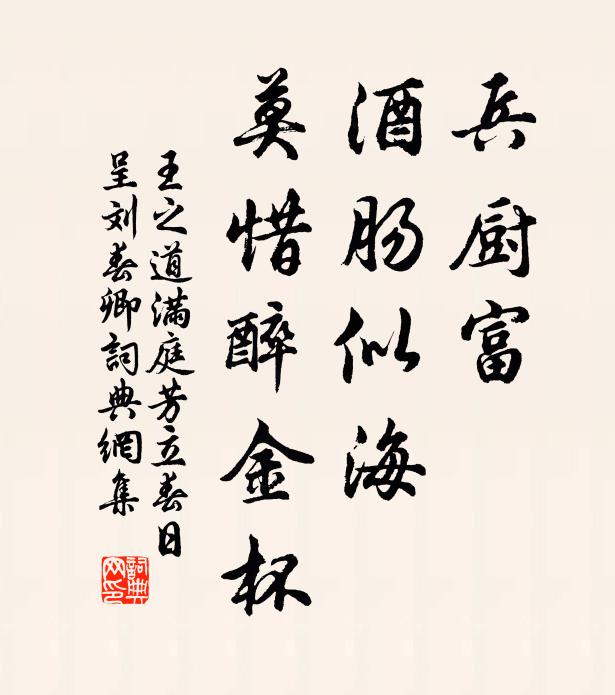 兵厨富
酒肠似海
莫惜醉金杯
王之道满庭芳立春日
呈刘春卿詞典網集
詞典
网印